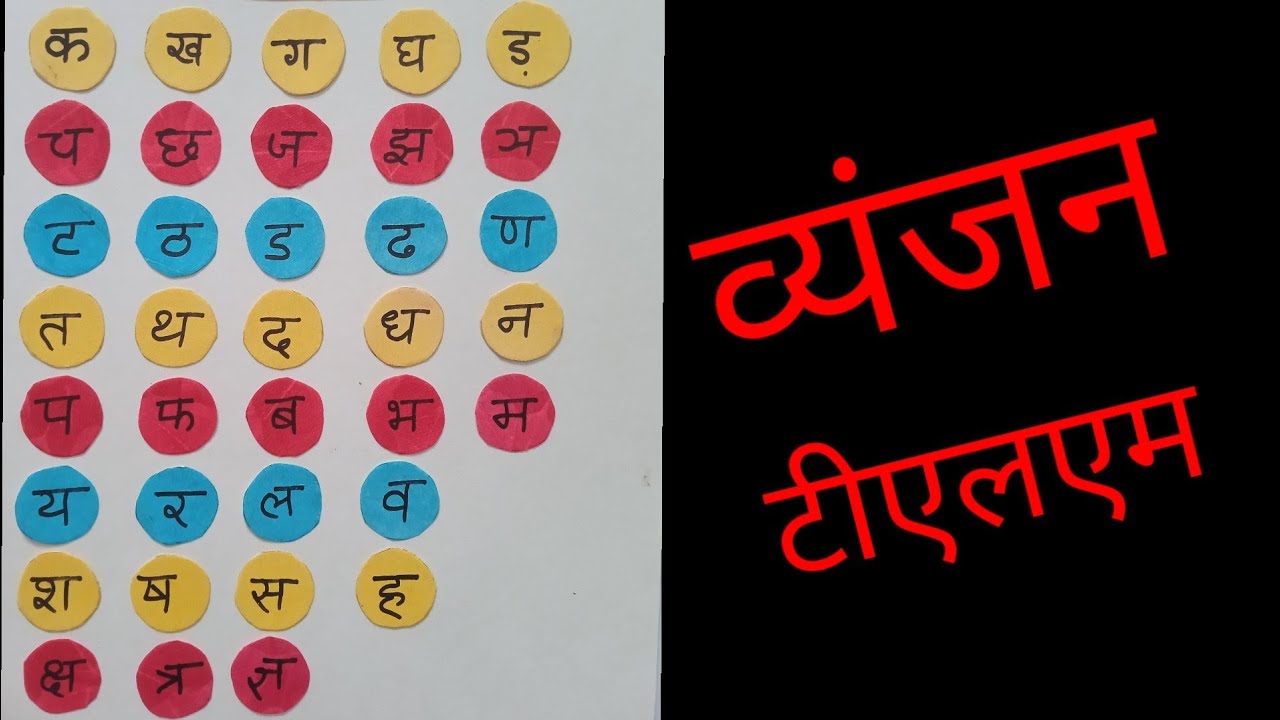 क ख ग घ ड़
च छ ज झ ञ
ट ठ ड ढ ण
त थ द ध न
प फ ब भ म
य र ल व
श ष स ह
क्ष त्र ज्ञ
व्यंजन
टीएलएम